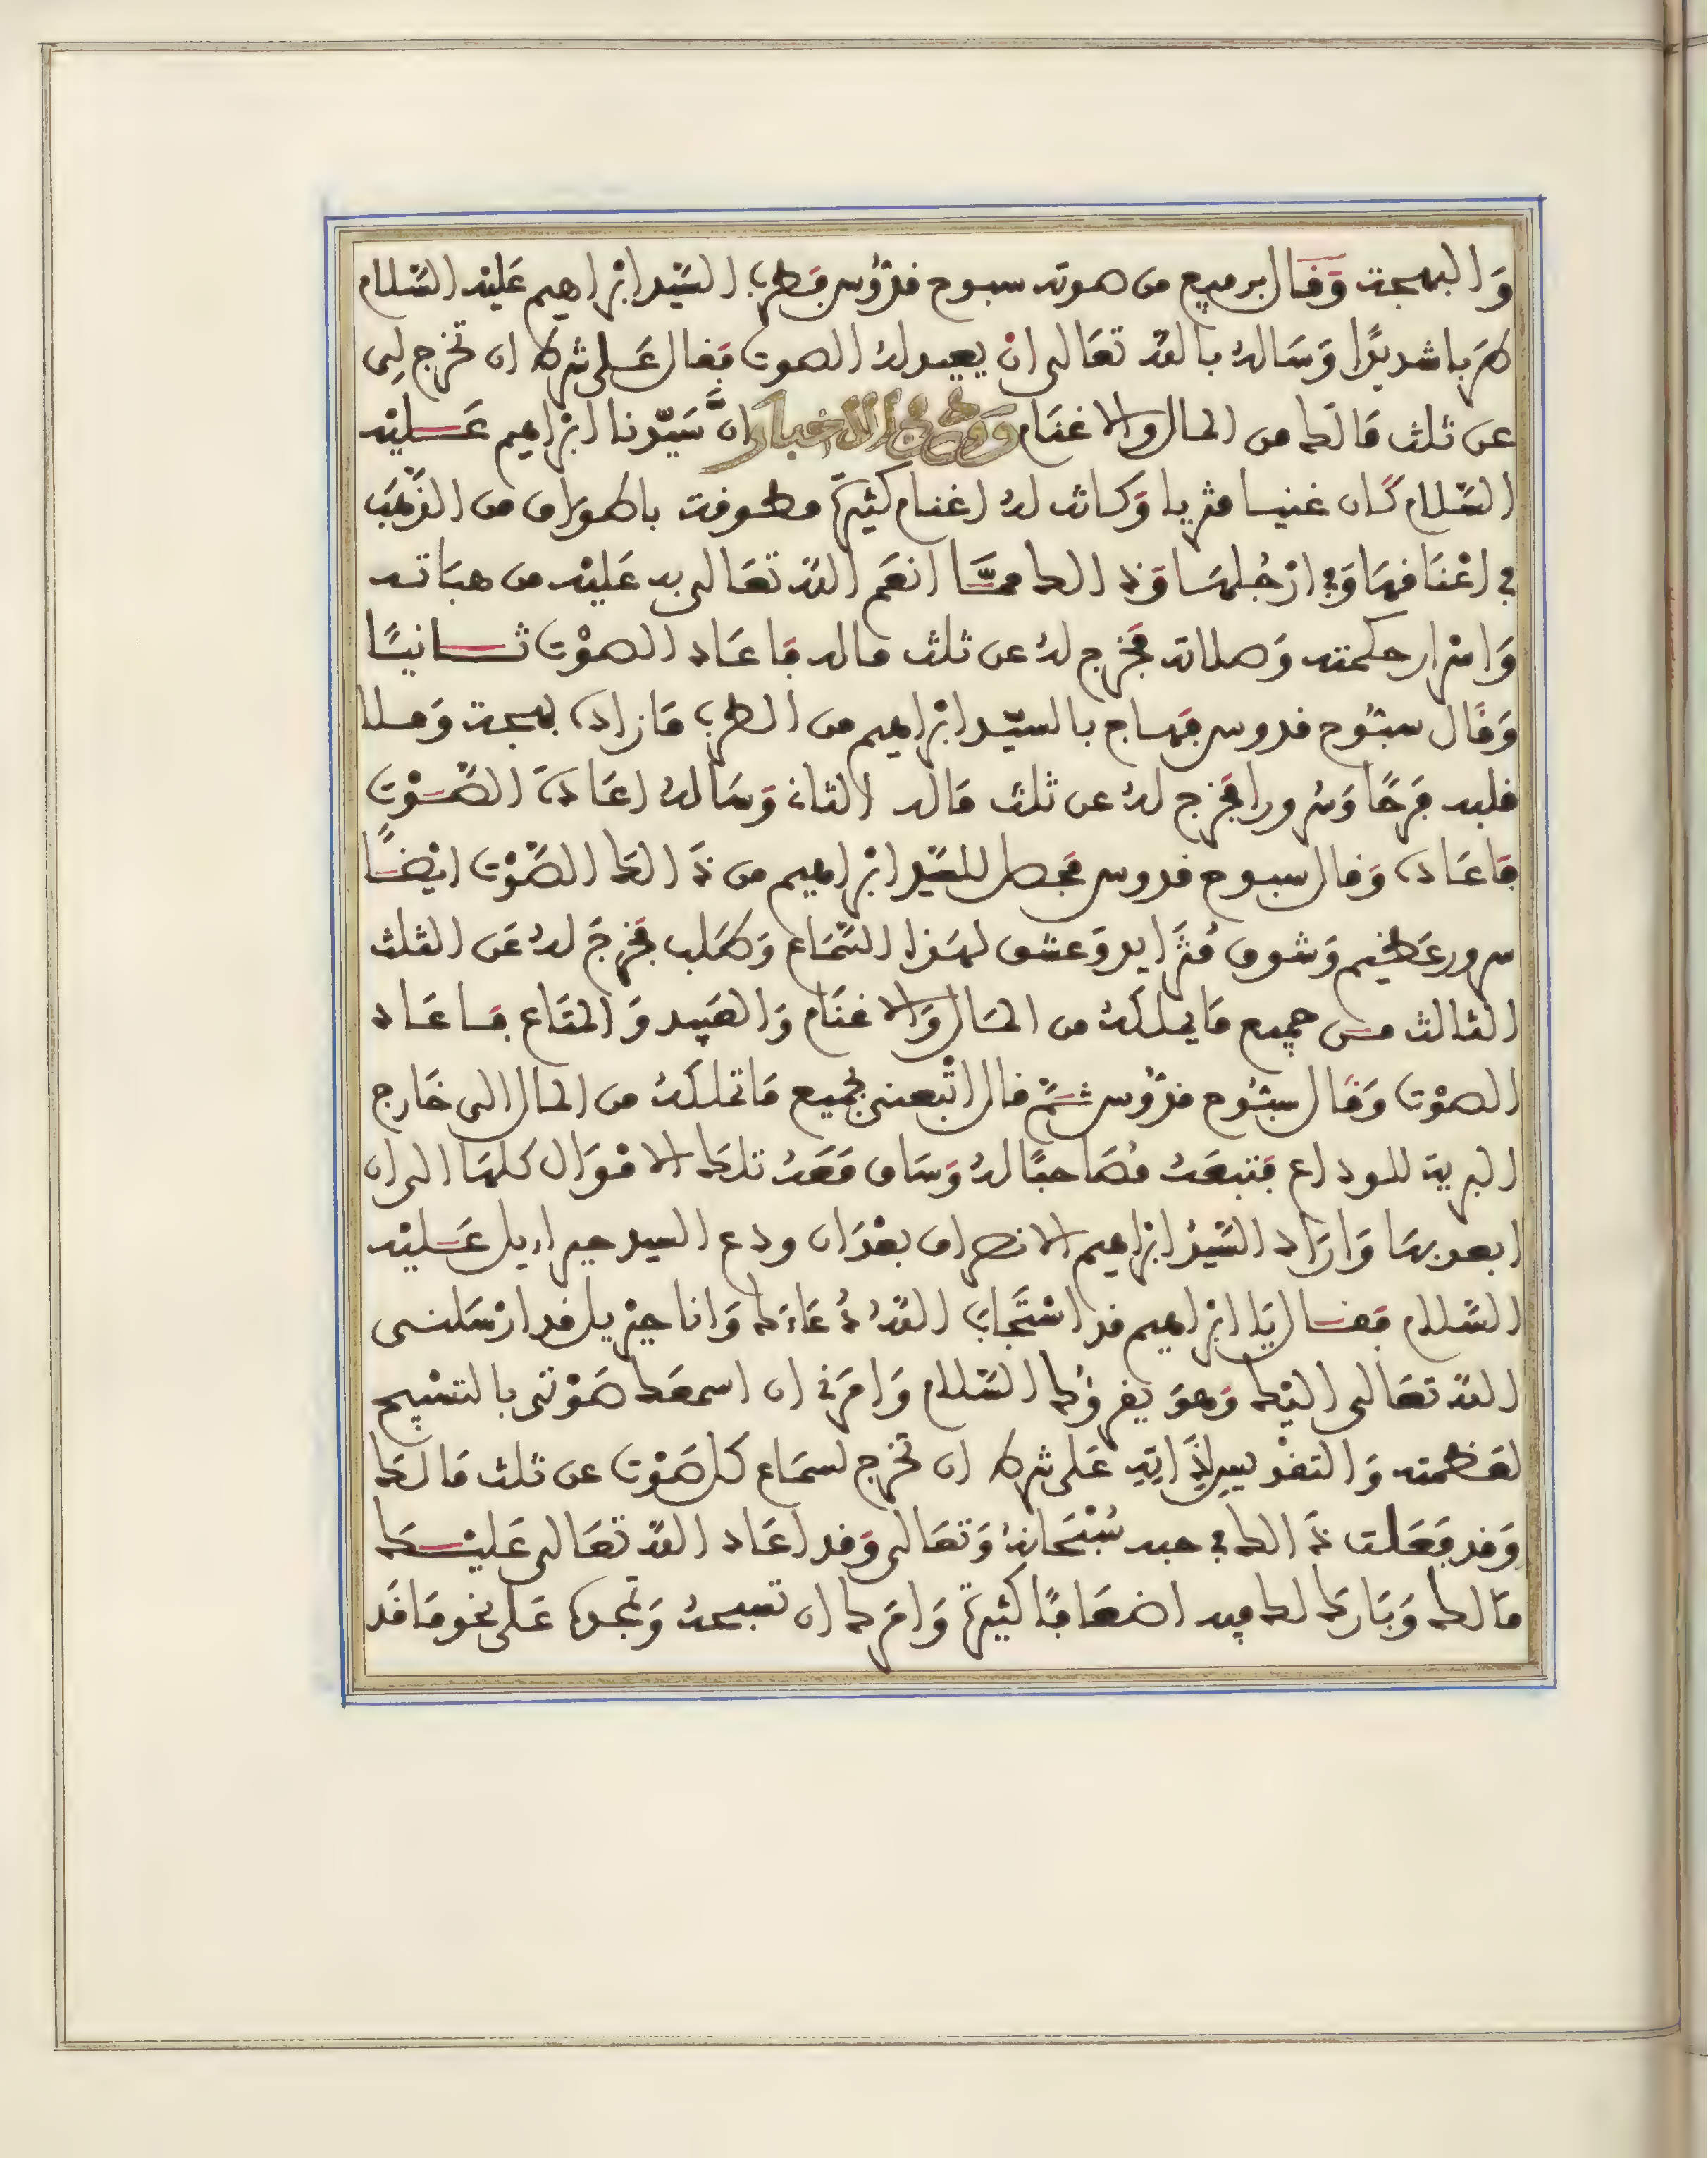 وَالبهجة وَقَال برفيع من صوته سبوح قدّوس فَطرب السّيد ابْراهيم عَليْه السّلام
طرَبا شديدًا وَسَالهُ بالله تعَالى انْ يعيد لهُ الصوت فقال عَلى شرط ان تخرج لِى
عن ثلث مَالك من المال والاغنَام وَوقع فى الاخبار انَّ سَيّدنا ابْراهيم عَليْه
السّلام كَان غنيا مثريا وَكانت لهُ اغنام كثيرَة مطوقة باطوَاق من الذّهَب
في اعْنَاقهَا وَفي ارْجُلهَا وَذالك ممَّا انعَم الله تعَالى به عَليْه من هبَاته
وَاسْرار حكمته وَصلاته فَخرج لهُ عن ثلث ماله فاعَاد الصوْت ثانيًا
وَقَال سبُّوح قدوس فهَاج بالسيّد ابْراهيم من الطرب مَا زاده بهجة وَملا
قلبه فرَحًا وَسُرورا فخَرج لهُ عن ثلث مَاله الثان وَسَالهُ اعَادَة الصّوْت
فاعَاده وَقال سبوح قدوس فحَصل للسّيد ابْراهيم من ذَالك الصّوْت ايْضًا
سرور عَظيم وَشوق مُتزَايد وَعشق لهَذا السّمَاع وَطَلب فخرجَ لهُ عَن الثلث
الثالث من جميع مَا يملكهُ من المَال وَالاغنَام وَالعَبيد وَالمتَاع فاعَاد
الصوْت وَقَال سبُّوح قدّوس ثمَّ قال اتْبعنى بجميع مَا تملكهُ من المال الى خَارج
البرية للوداع فتبعَهُ مُصَاحبًا لهُ وَسَاق مَعَهُ تلكَ الامْوَال كلهَا الى ان
ابعد بهَا وَارَاد السّيدُ ابْراهيم الانصراف بعْدَ ان ودع السيد جبراءيل عَليْه
السّلام فقَال يَا ابْراهيم قد اسْتجَابَ اللهُ دُعَاءَك وَانا جبْريل قد ارْسَلنى
الله تعَالى اليْك وَهوَ يقرؤُك السّلام وَامرَنى ان اسمعَك صَوْتى بالتسْبيح
لعَظمته وَالتقديس لِذَاتِهِ عَلى شرط ان تخرج لسمَاع كل صَوْت عن ثلث مَالكَ
وَقد فعَلت ذَالك في حبه سُبْحَانهُ وَتعَالى وَقد اعَاد الله تعَالى عَليْكَ
مَالك وَبَارك لك فيه اضعَافًا كثيرَة وَامرَك ان تسبحهُ وَتمجده عَلى نحو مَا قَد